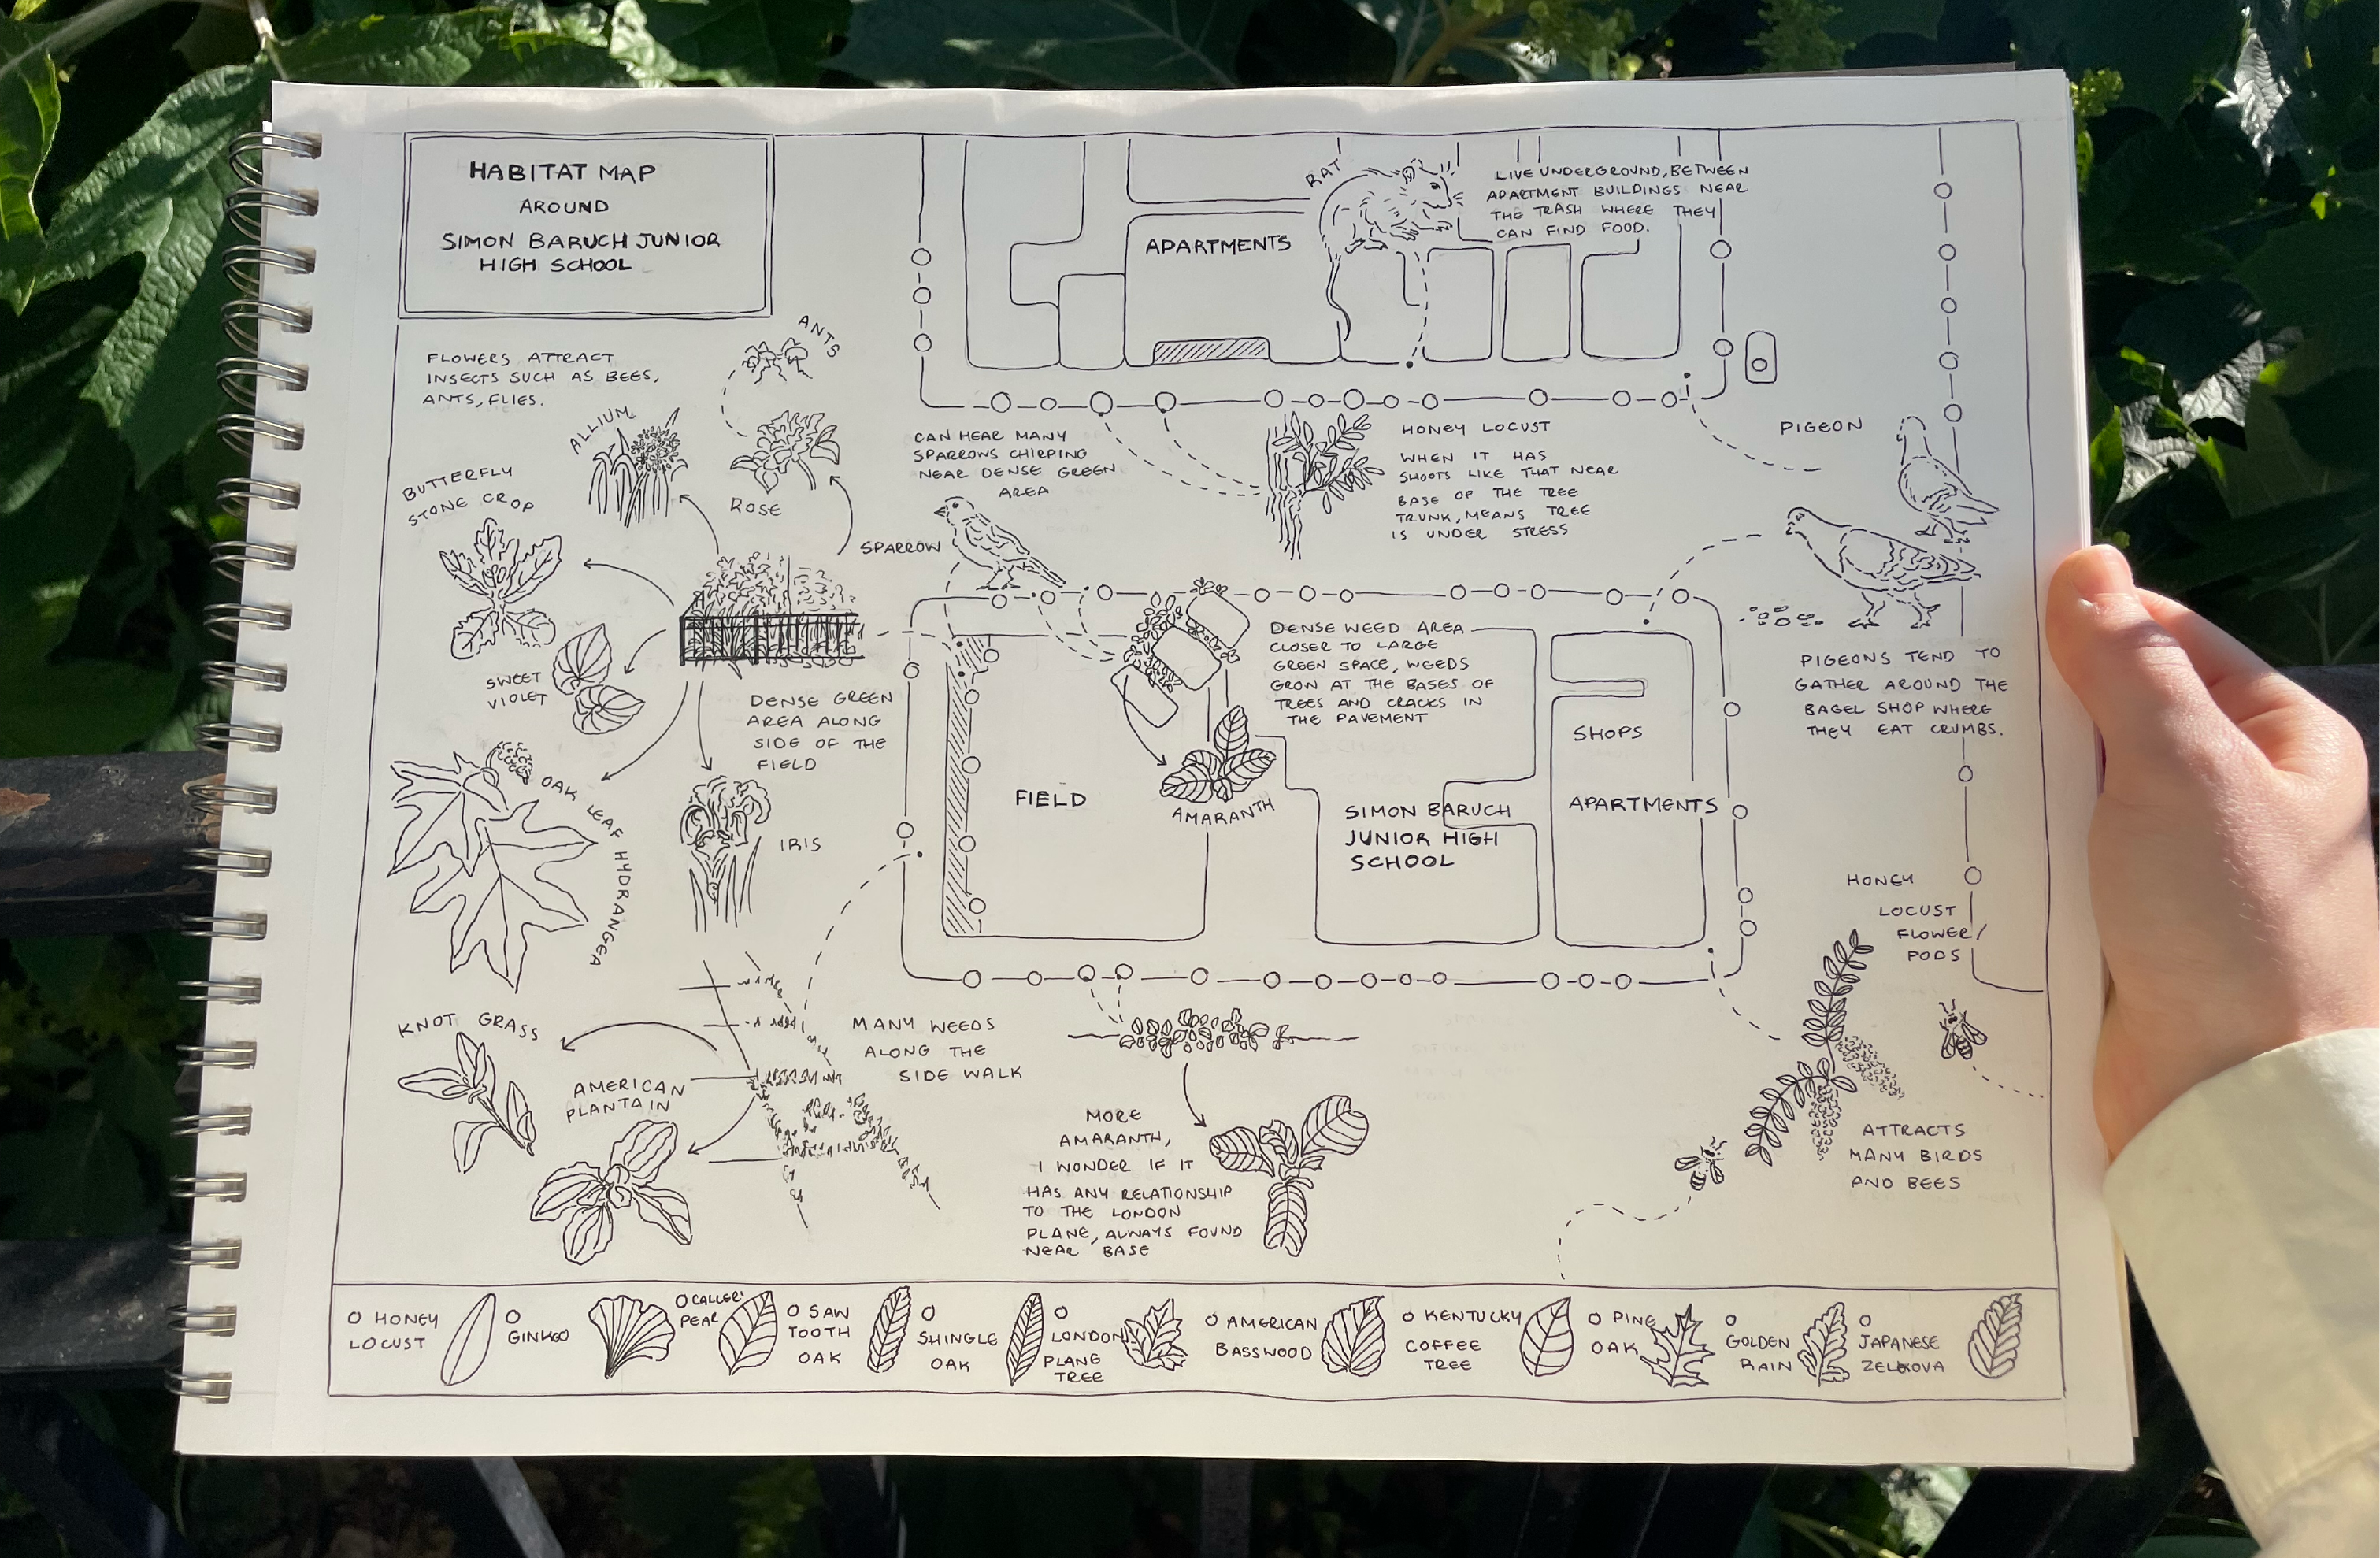 HABITAT MAP
AROUND
SIMON BARUCH JUNIOR
HIGH SCHOOL
RAT
LIVE UNDERGROUND, BETWEEN
APARTMENT BUILDINGS NEAR
THE TRASH WHERE THEY
CAN FIND FOOD.
APARTMENTS
FLOWERS ATTRACT
INSECTS SUCH AS BEES,
ANTS, FLIES.
ANTS
ALLIUM
ROSE
BUTTERFLY
STONE CROP
SWEET
VIOLET
OAK LEAF HYDRANGEA
IRIS
DENSE GREEN
AREA ALONG
SIDE OF THE
FIELD
CAN HEAR MANY
SPARROWS CHIRPING
NEAR DENSE GREEN
AREA
SPARROW
HONEY LOCUST
WHEN IT HAS
SHOOTS LIKE THAT NEAR
BASE OF THE TREE
TRUNK, MEANS TREE
IS UNDER STRESS
PIGEON
PIGEONS TEND TO
GATHER AROUND THE
BAGEL SHOP WHERE
THEY EAT CRUMBS.
DENSE WEED AREA
CLOSER TO LARGE
GREEN SPACE, WEEDS
GROW AT THE BASES OF
TREES AND CRACKS IN
THE PAVEMENT
AMARANTH
FIELD
SIMON BARUCH
JUNIOR HIGH
SCHOOL
SHOPS
APARTMENTS
HONEY
LOCUST
FLOWER/
PODS
ATTRACTS
MANY BIRDS
AND BEES
KNOT GRASS
AMERICAN
PLANTAIN
MANY WEEDS
ALONG THE
SIDE WALK
MORE
AMARANTH,
I WONDER IF IT
HAS ANY RELATIONSHIP
TO THE LONDON
PLANE, ALWAYS FOUND
NEAR BASE
HONEY
LOCUST
GINKGO
CALLERY
PEAR
SAW
TOOTH
OAK
SHINGLE
OAK
LONDON
PLANE
TREE
AMERICAN
BASSWOOD
KENTUCKY
COFFEE
TREE
PINE
OAK
GOLDEN
RAIN
JAPANESE
ZELKOVA